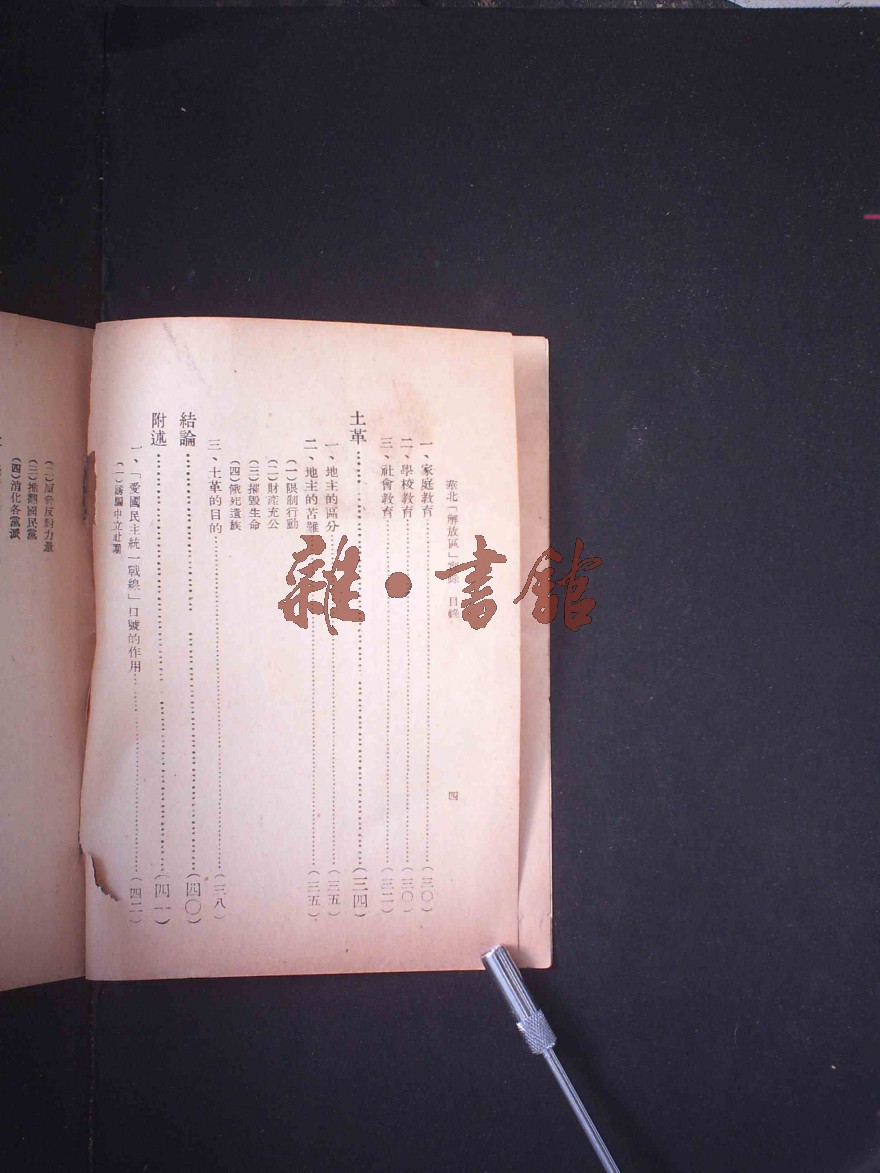 塞北「解放區」 目錄
四
一、家庭教育……(三〇)
二、學校教育……(三〇)
三、社會教育……(三二)
土革……(三四)
一、地主的區分……(三五)
二、地主的苦難……(三五)
(一)限制行動
(二)財產充公
(三)摧毀生命
(四)餓死遺族
三、土革的目的……(三八)
結論……(四〇)
附述……(四一)
一、「愛國民主統一戰線」口號的作用……(四二)
(一)誘騙中立社團
反對力量
(三)推翻國民黨
(四)消化各黨派
雜·書館